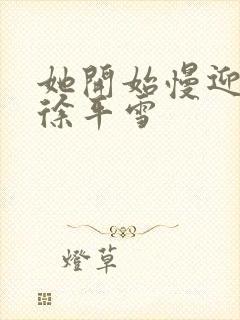 她開始慢迎
徐平雪
燈草